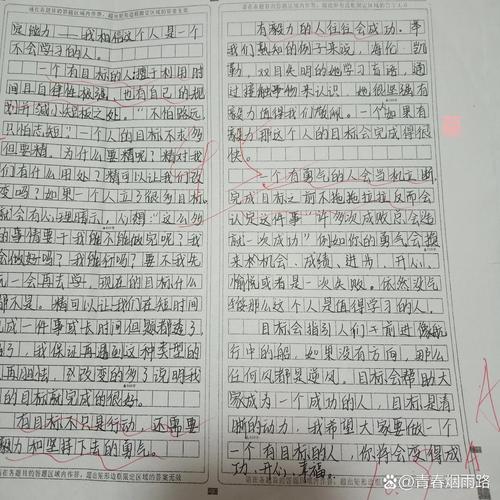 请在各题目的答题区域内作答，超出矩形边框限定区域的答案无效
定能力——我相信这个人是一个
不会学习的人。
一个有目标的人，擅于利用时
间且自律性极强，也有自己的规
划并减小短板之处。“不怕路远，
只怕志短”一个人的目标不求多
但要精，为什么要精呢？精对我
们有什么用处？精可以让我们改
变吗？如果一个人立了很多目标。
就会有心理暗示，心想：“这么多
的事情要干我能不能做完呢？我
会做好吗？我能行吗？要不我先
玩一会再去学，现在的目标什么
都不是。精可以让我们在短时间
完成一件事或长时间但
了，我保证再遇到这种类型的
再胆怯，改变的多了说明我
的目标就完成的很好。
有目标不只是行动，还需要
毅力和坚持下去的勇气。
请在各题目的答题区域内作答，超出矩形边框限定区域的答案无效
有毅力的人往往会成功。举
我们熟知的例子来说，海伦·凯
勒，双目失明的她学习盲语，通
过接触事物来认识，她很坚强有
毅力值得我们敬佩。一个如果有
毅力那这个人的目标会完成得很
快。
一个有勇气的人会当机立断，
完成目标之前不拖拖拉拉反而会
认定这件事“许多次成败总会造
就一次成功”例如你的勇气会换
来术机会、成绩、进步、开心、
愉悦或者是一次失败。依然没气
馁那么这个人是值得学习的人。
目标会指引人们干前进像航
行中的船，如果没有方向，那么
任何风都是逆风。目标会帮助大
家成为一个成功的人，目标是清
晰的动力，我希望大家要做一个
一个有目标的人，你将会变得成
功、开心、幸福。
请在各题目的答题区域内作答，超出矩形边框限定区域的答案无效
@青春烟雨路